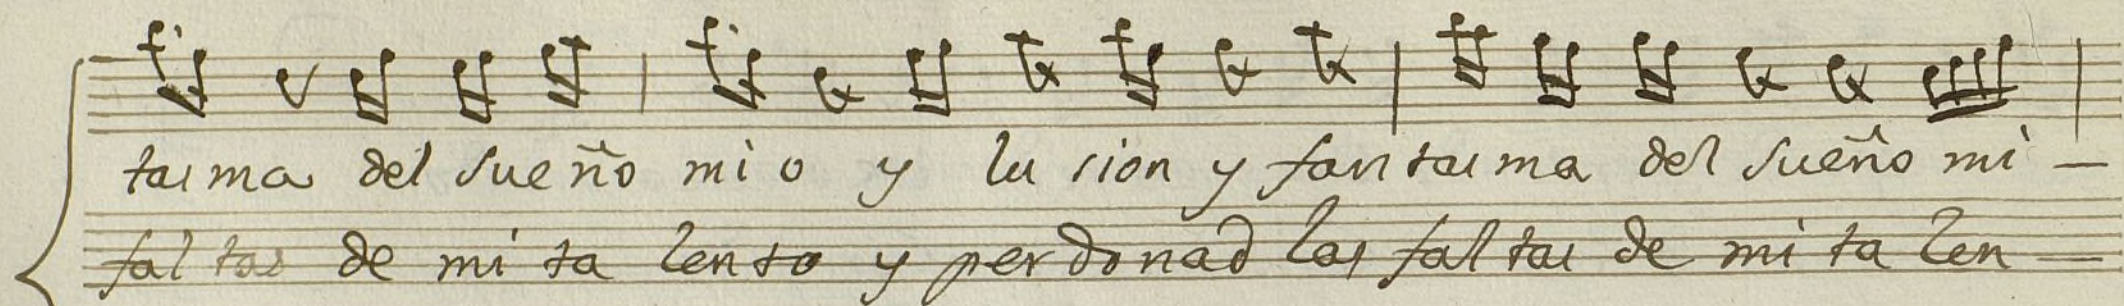 tasma del sueño mio y lu sion y fan tas ma del sueño mi -
fal tas de mi ta lento y per donad las fal tas de mi ta len -